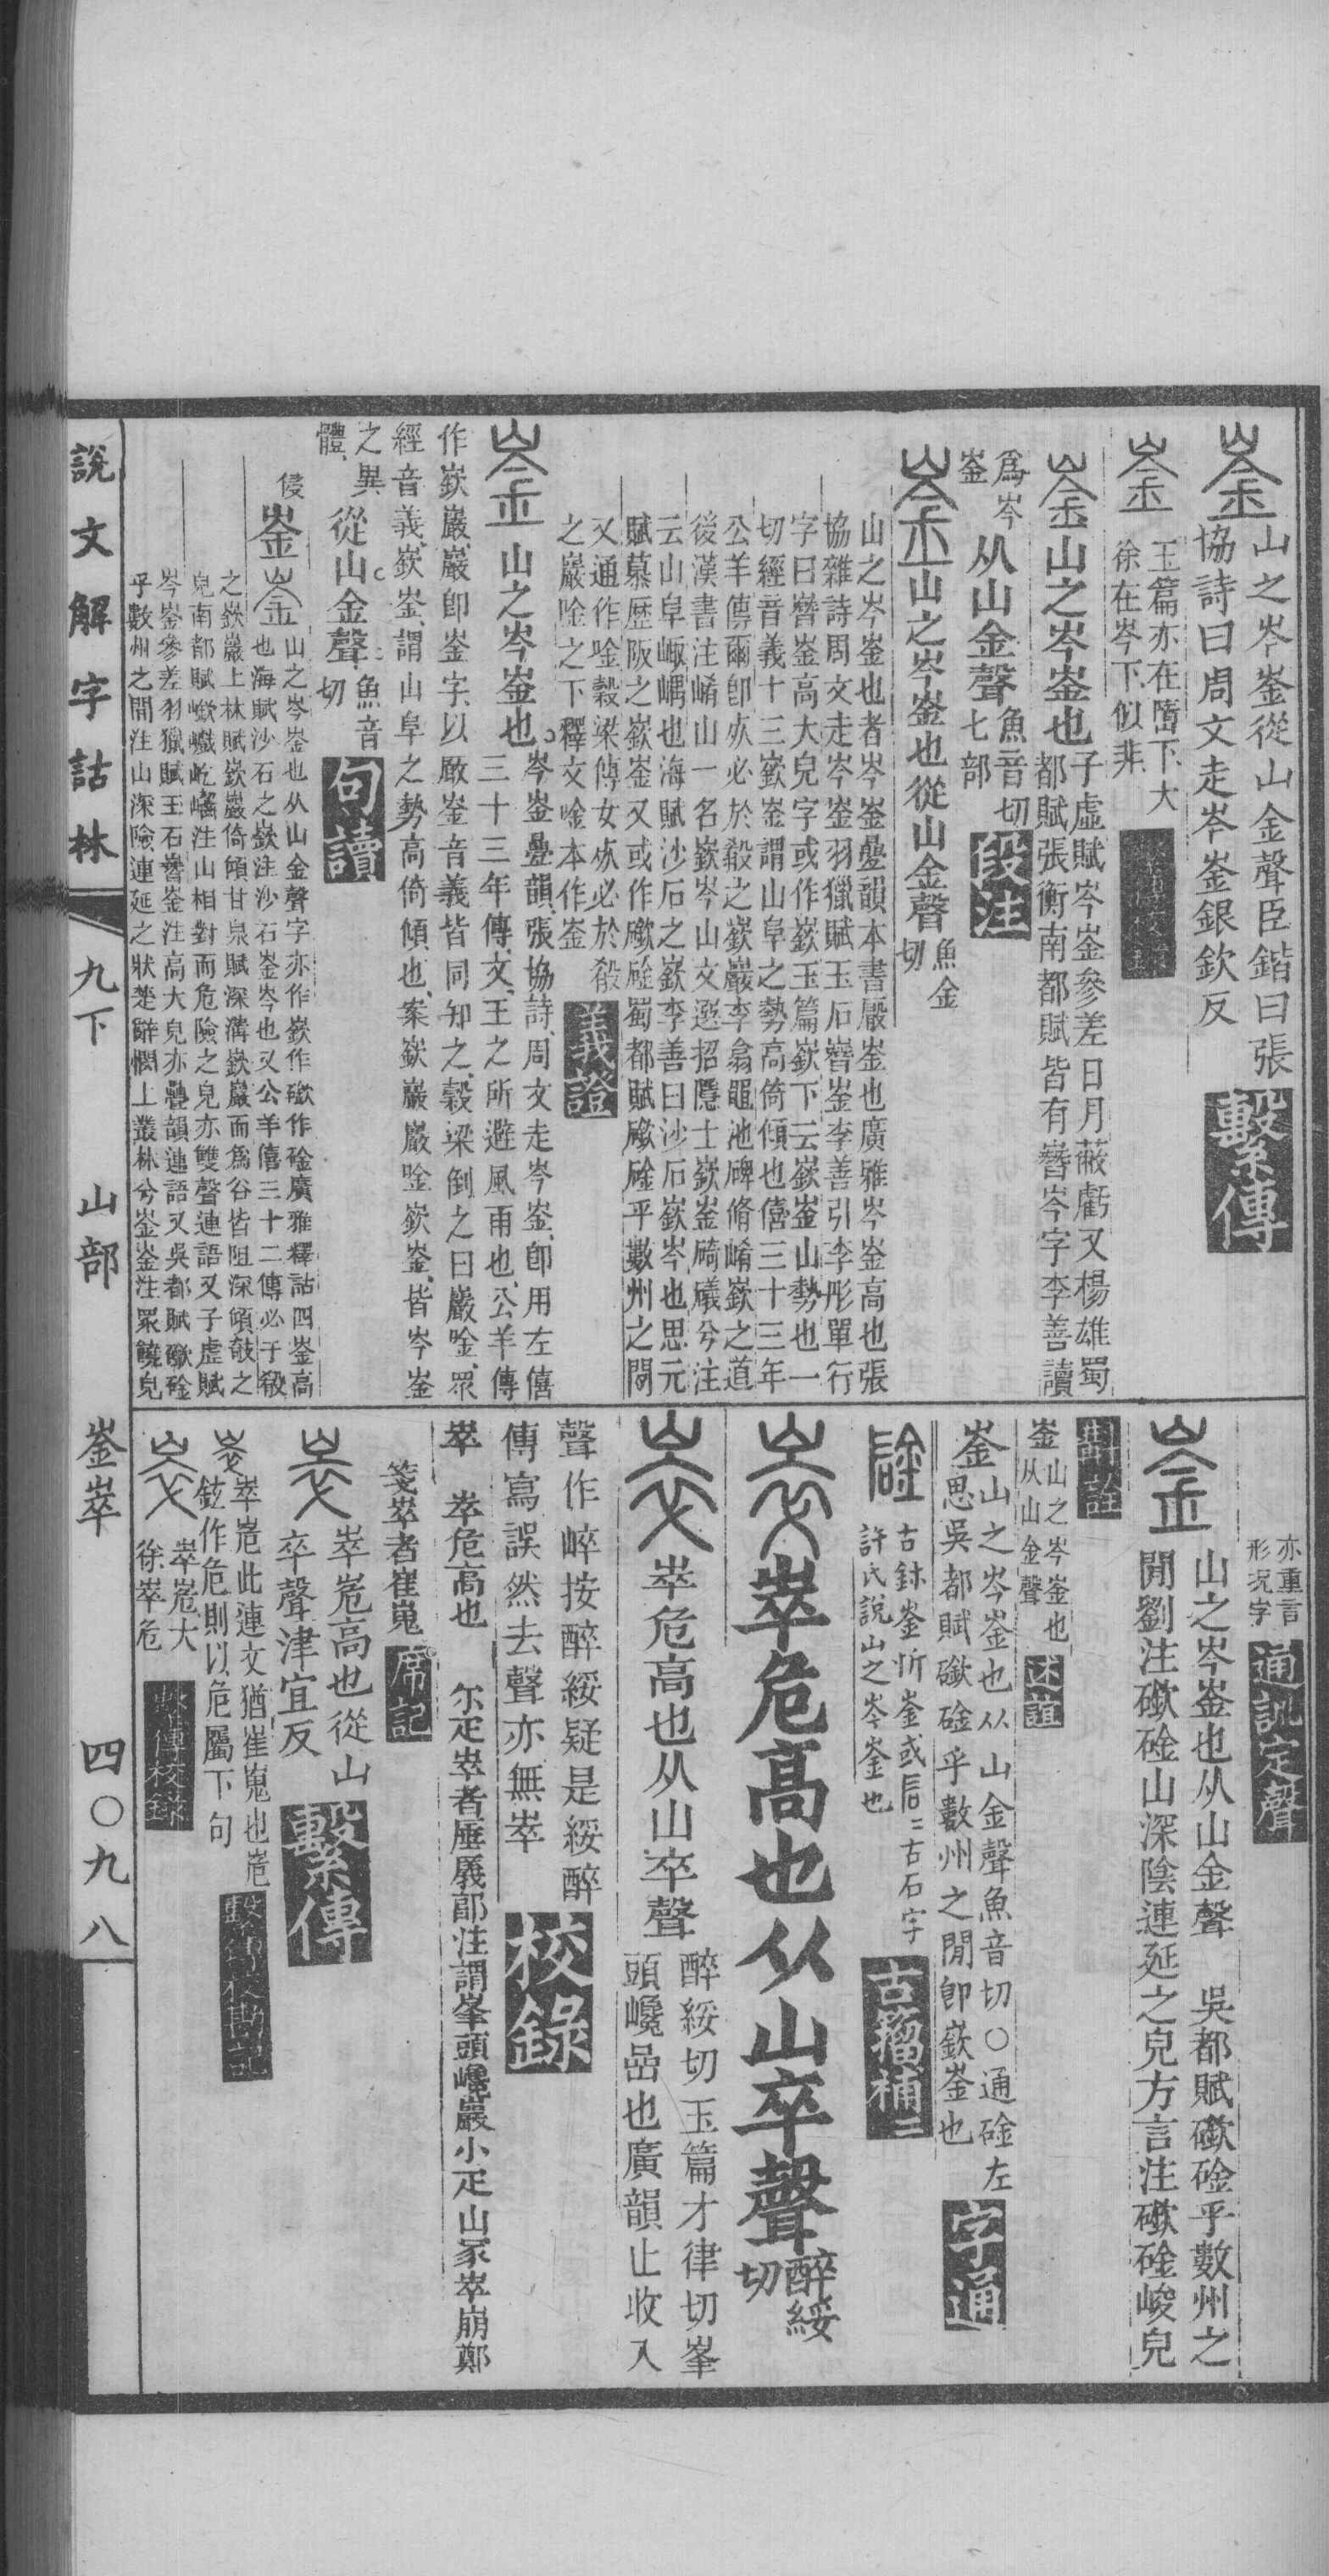 山之岑崟從山金聲臣鍇曰張
協詩曰周文走岑崟銀欽反
繫傳
玉篇亦在嶞下大
徐在岑下似非
山之岑崟也
子虛賦岑崟參差日月蔽虧又楊雄蜀
都賦張衡南都賦皆有㟥岑字李善讀
為岑
崟
从山金聲
魚音切
七部
段注
山之岑崟也從山金聲
魚金
切
山之岑崟也者岑崟疊韻本書厰崟也廣雅岑崟高也張
協雜詩周文走岑崟羽獵賦玉石㟥崟李善引李彤單行
字曰㟥崟高大皃字或作嶔玉篇嶔下云嶔崟山勢也一
切經音義十三嶔崟謂山阜之勢高倚傾也僖三十三年
公羊傳爾卽𣦸必於殽之嶔巖李翕黽池碑脩崤嶔之道
後漢書注崤山一名嶔岑山文選招隱士嶔崟碕礒兮注
云山阜峗嵎也海賦沙石之嶔李善曰沙石嶔岑也思元
賦慕歷阪之嶔崟又或作礉硶蜀都賦礉硶乎數州之閒
又通作唫穀梁傳女𣦸必於殽
之巖唫之下釋文唫本作崟
義證
山之岑崟也
岑崟疊韻、張協詩、周文走岑崟、卽用左僖
三十三年傳、文、王之所避風雨也、公羊傳
作嶔巖巖卽崟字、以厰崟音義皆同知之、穀梁倒之曰巖唫、眾
經音義、嶔崟、謂山阜之勢高倚傾也、案嶔巖巖唫嶔崟、皆岑崟
之異
體、
從山金聲
魚音
切
句讀
侵
崟
山之岑崟也从山金聲字亦作嶔作礉作硶廣雅釋詁四崟高
也海賦沙石之嶔注沙石崟岑也又公羊僖三十二傳必于殽
之嶔巖上林賦嶔巖倚傾甘泉賦深溝嶔巖而為谷皆阻深傾攲之
皃南都賦嶔巇屹㠋注山相對而危險之皃亦雙聲連語又子虛賦
岑崟參差羽獵賦玉石㟥崟注高大皃亦疊韻連語又吳都賦礉硶
乎數州之閒注山深險連延之狀楚辭憫上叢林兮崟崟注眾饒皃
亦重言
形況字
通訓定聲
山之岑崟也从山金聲
吳都賦礉硶乎數州之
閒劉注礉硶山深陰連延之皃方言注礉硶峻皃
斠詮
崟山之岑崟也
从山金聲
述誼
崟
山之岑崟也从山金聲魚音切○通硶左
思吳都賦礉硶乎數州之閒卽嶔崟也
字通
古鉢崟忻崟或𠩺二古石字
許氏說山之岑崟也
古籀補二
崒危高也从山卒聲
醉綏
切
崒危高也从山卒聲
醉綏切玉篇才律切峯
頭巉嵒也廣韻止收入
聲作崪按醉綏疑是綏醉
傳寫誤然去聲亦無崒
校錄
崒
崒危高也
尒疋崒者厜㕒郭注謂峯頭巉巖小疋山冢崒崩鄭
箋崒者崔嵬
席記
崒峞高也從山
卒聲津宜反
繫傳
崒峞此連文猶崔嵬也峞
鉉作危則以危屬下句
繫傳校勘記
崒峞大
徐崒危
繫傳校錄
說文解字詁林
九下
山部
崟崒
四○九八